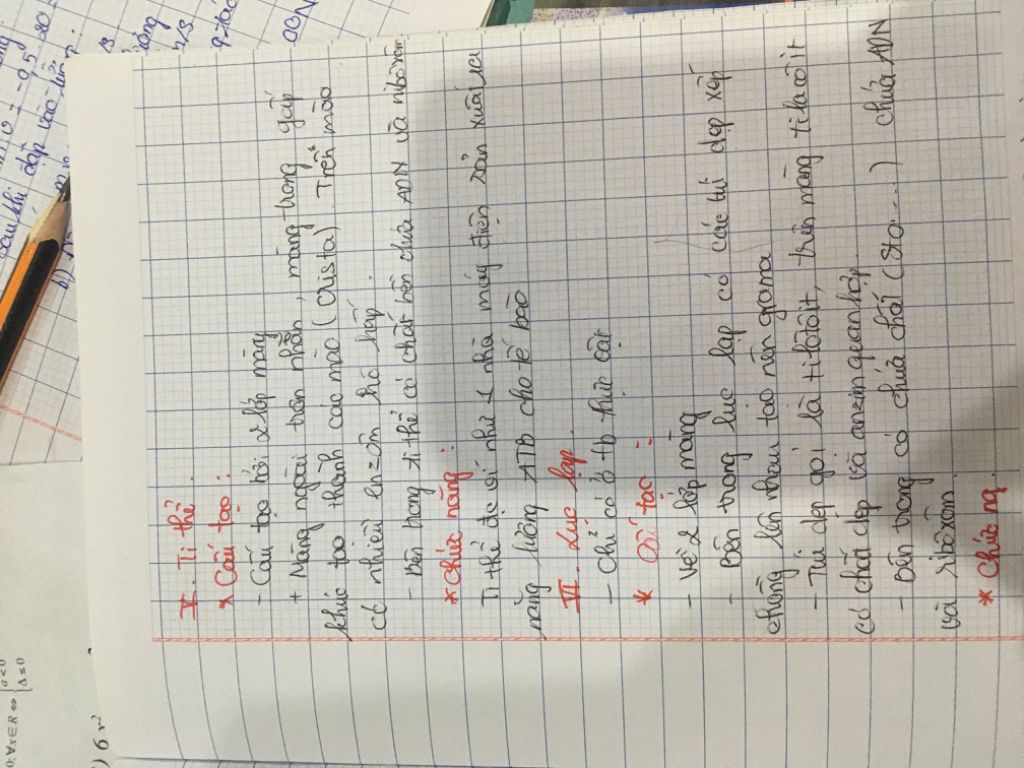 V. Ti thể.
* Cấu tạo:
- Cấu tạo bởi 2 lớp màng
+ Màng ngoài trơn nhẵn, màng trong gấp
khúc tạo thành các mào (crista). Trên mào
có nhiều enzôm hô hấp.
- Bên trong ti thể có chất nền chứa ADN và ribôxôm
* Chức năng:
Ti thể đc ví như 1 nhà máy điện sản xuất ra
năng lượng ATB cho tế bào
VI. Lục lạp.
- Chỉ có ở tb thực vật
* Cấu tạc:
- Về 2 lớp màng
- Bên trong lục lạp có các túi dẹp xếp
chồng lên nhau tạo nên grana
- Túi dẹp gọi là tilatôit, trên màng tilacôit
có chất dẹp và enzim quanhợp.
- Bên trong có chứa chất (Stro...) chứa ADN
và ribôxôm.
* Chức nq.
sau khi đập vào
= -0,5
b)
ADN
) 6
0; ∀x∈R ⇔ { a < 0
Δ ≤ 0